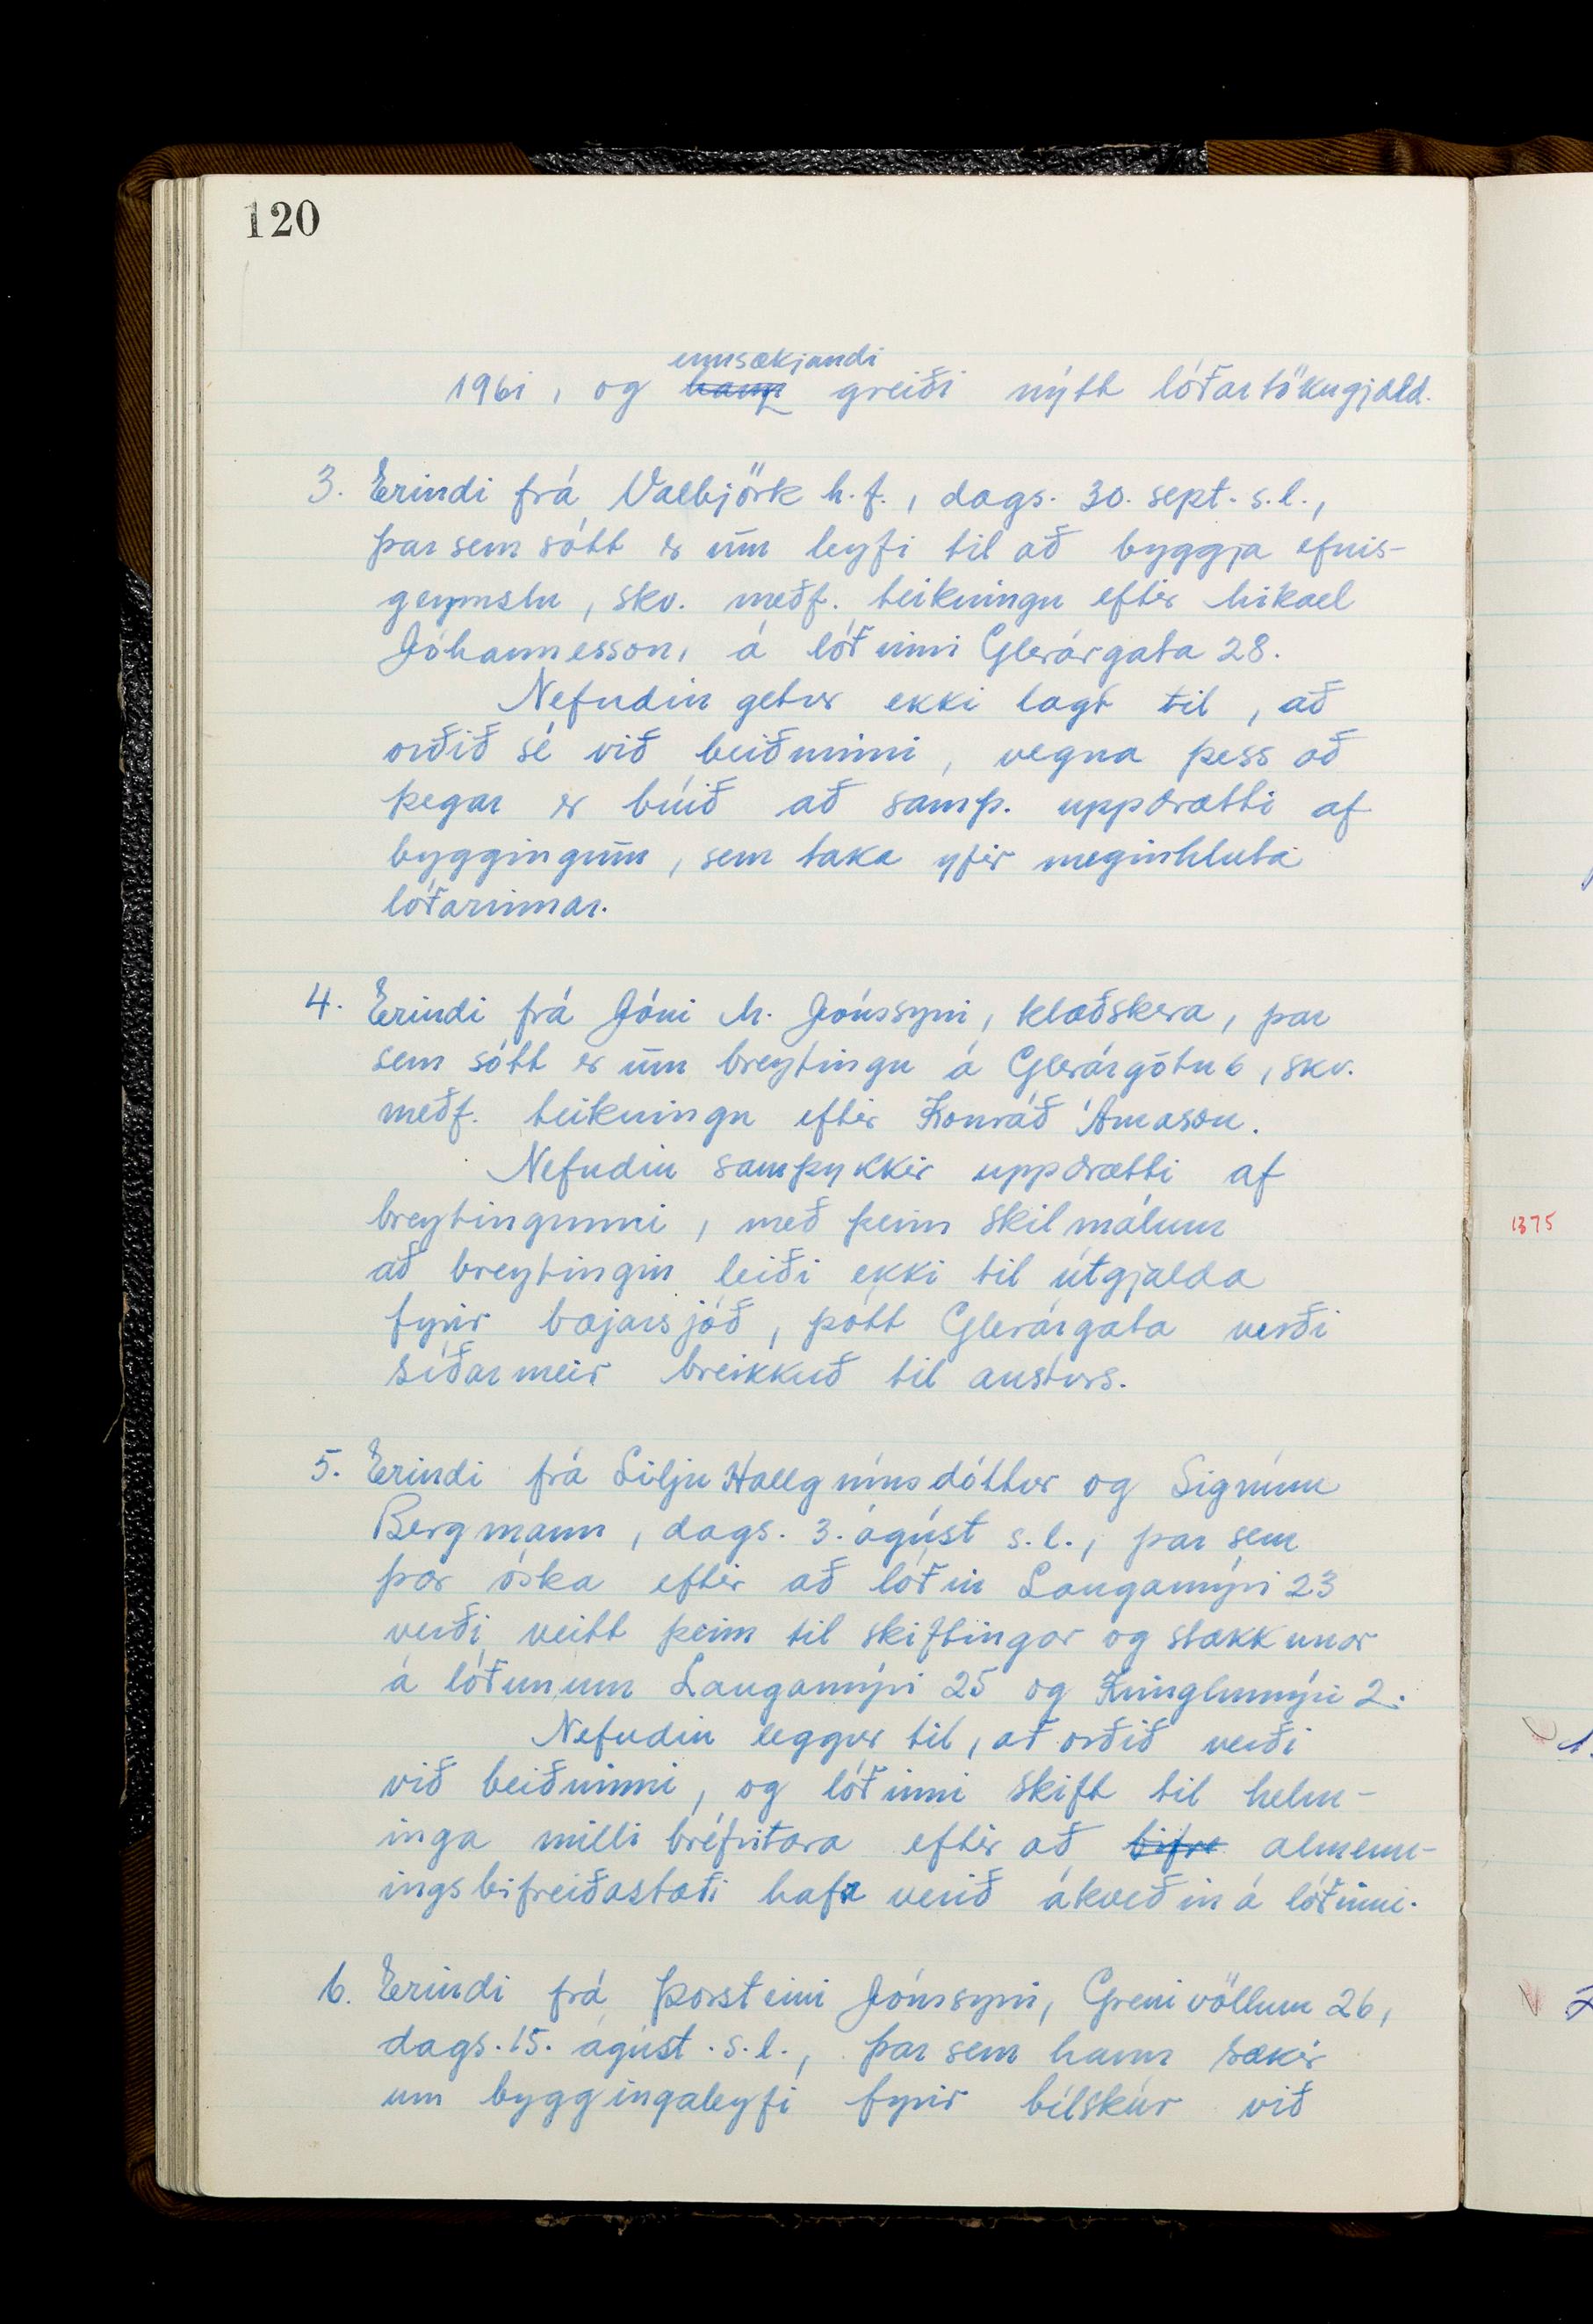 120
umsækjandi
1961, og hann greiði nýtt lóðartökugjald.
3. Erindi frá Valbjörk h.f., dags. 30. sept. s.l.,
þar sem sótt er um leyfi til að byggja efnis-
geymslu, skv. meðf. teikningu eftir Mikael
Jóhannesson, á lóðinni Glerárgata 28.
Nefndin getur ekki lagt til, að
orðið sé við beiðninni, vegna þess að
þegar er búið að samþ. uppdrætti af
byggingum, sem taka yfir meginhluta
lóðarinnar.
4. Erindi frá Jóni M. Jónssyni, klæðskera, þar
sem sótt er um breytingu á Glerárgötu 6, skv.
meðf. teikningu eftir Konráð Árnason.
Nefndin samþykkir uppdrætti af
breytingunni, með þeim skilmálum
að breytingin leiði ekki til útgjalda
fyrir bæjarsjóð, þótt Glerárgata verði
síðarmeir breikkuð til austurs.
5. Erindi frá Lilju Hallgrímsdóttur og Sigrúnu
Bergmann, dags. 3. ágúst s.l., þar sem
þær óska eftir að lóðin Langamýri 23
verði veitt þeim til skiftingar og stækkunar
á lóðunum Langamýri 25 og Kringlumýri 2.
Nefndin leggur til, að orðið verði
við beiðninni, og lóðinni skift til helm-
inga milli bréfritara eftir að bifre almenn-
ingsbifreiðastæði hafa verið ákveðin á lóðinni.
6. Erindi frá Þorsteini Jónssyni, Grenivöllum 26,
dags. 15. ágúst. s.l., þar sem hann sækir
um byggingaleyfi fyrir bílskúr við
1375